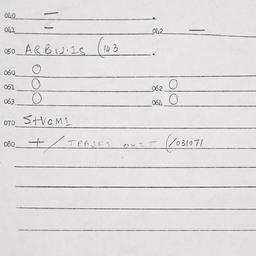 040 —
041 — 042 —
050 ARBUIS (143
060 O
061 O 062 O
063 O 064 O
070 StVOM1
080 + / (/031071